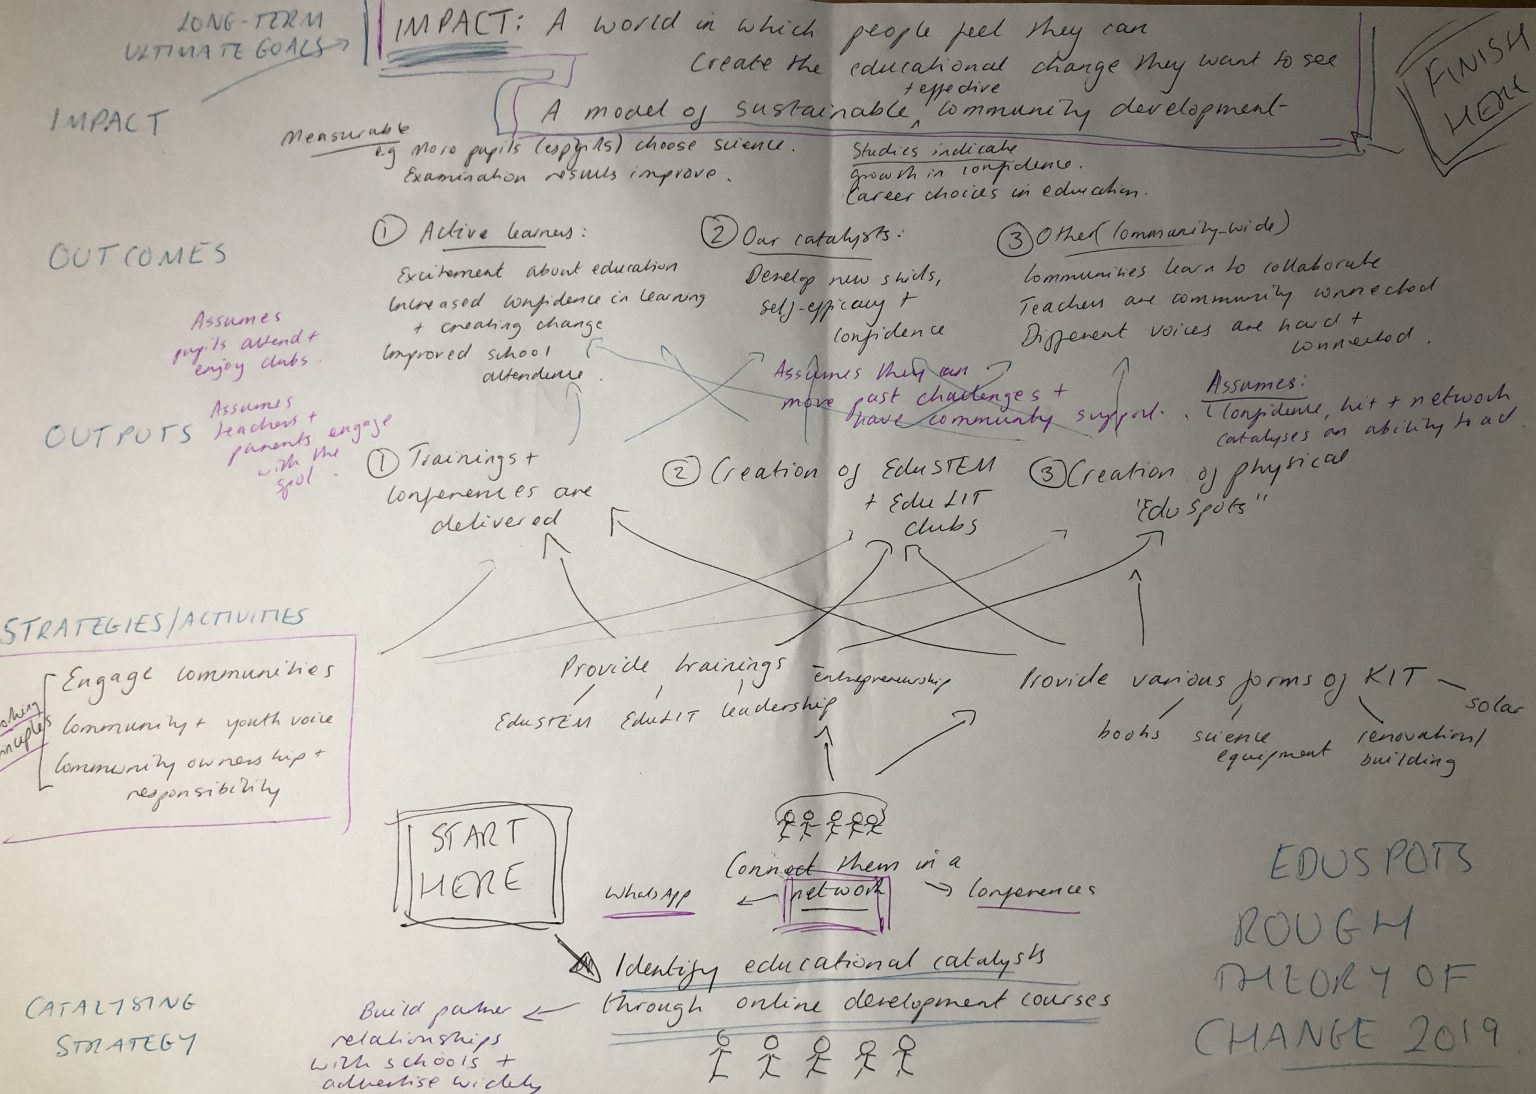 LONG-TERM
ULTIMATE GOALS
IMPACT: A world in which people feel they can
create the educational change they want to see
+ effective
A model of sustainable community development
FINISH
HERE
IMPACT
Measurable
e.g More pupils (esp girls) choose science.
Examination results improve.
Studies indicate
growth in confidence.
Career choices in education.
OUTCOMES
① Active learners:
Excitement about education
Increased confidence in learning
+ creating change
Improved school
attendence.
② Our catalysts:
Develop new skills,
self-efficacy +
confidence
③ Other (community-wide)
Communities learn to collaborate
Teachers are community connected
Different voices are heard +
connected.
Assumes
pupils attend +
enjoy clubs.
Assumes they can
move past challenges +
have community support.
Assumes:
Confidence, kit + network
catalyses an ability to
OUTPUTS
Assumes
teachers +
parents engage
with the
spot.
① Trainings +
conferences are
delivered
② Creation of EduSTEM
+ EduLIT
clubs
③ Creation of physical
"EduSpots"
STRATEGIES/ACTIVITIES
Engage communities
Community + youth voice
Community ownership +
responsibility
Provide trainings
EduSTEM EduLIT leadership
Entrepreneurship
Provide various forms of KIT
solar
books science
equipment
renovation/
building
START
HERE
Connect them in a
network
WhatsApp
Conferences
Identify educational catalysts
through online development courses
CATALYSING
STRATEGY
Build partner
relationships
with schools +
advertise widely
EDUSPOTS
ROUGH
THEORY OF
CHANGE 2019